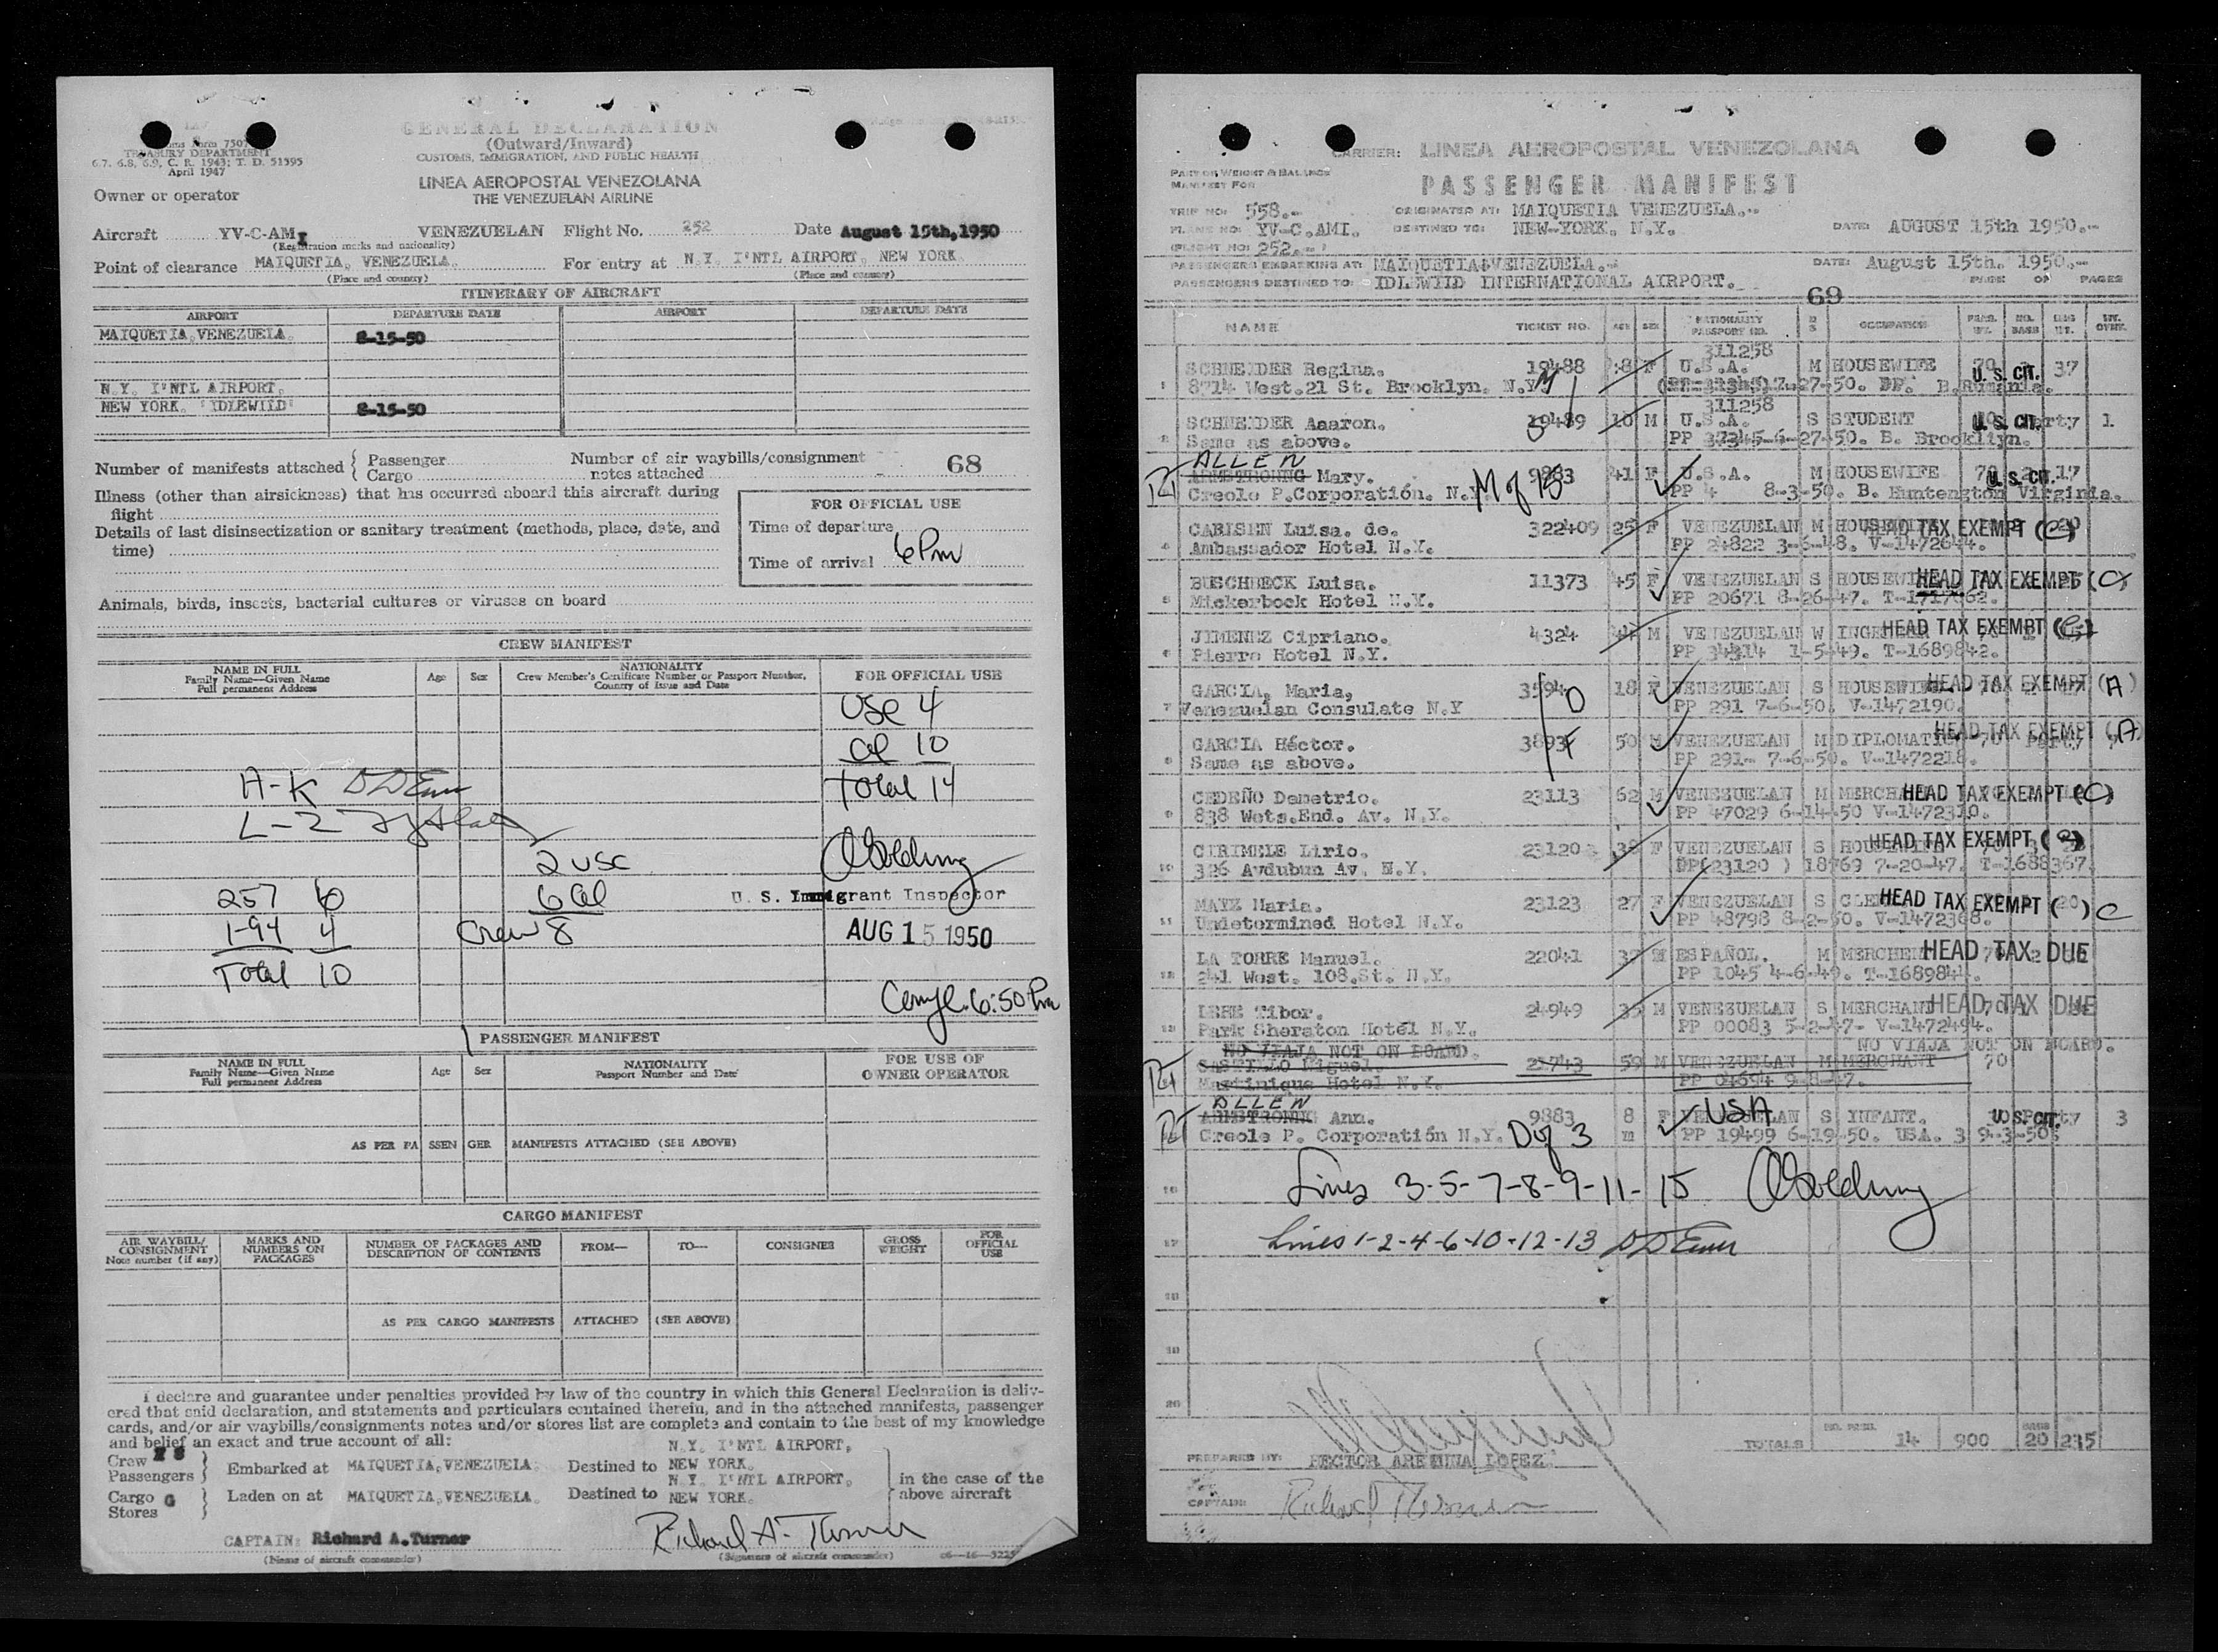 GENERAL DECLARATION
(Outward/Inward)
CUSTOMS, IMMIGRATION, AND PUBLIC HEALTH
Form 7507
TREASURY DEPARTMENT
6.7, 6.8, 6.9, C. R. 1943; T. D. 51595
April 1947
LINEA AEROPOSTAL VENEZOLANA
THE VENEZUELAN AIRLINE
Owner or operator
Aircraft YV-C-AMI VENEZUELAN Flight No. 252 Date August 15th, 1950
(Registration marks and nationality)
Point of clearance MAIQUETIA, VENEZUELA. For entry at N.Y. I'NTL AIRPORT, NEW YORK
(Place and country) (Place and country)
ITINERARY OF AIRCRAFT
AIRPORT DEPARTURE DATE AIRPORT DEPARTURE DATE
MAIQUETIA, VENEZUELA. 8-15-50
N.Y. I'NTL AIRPORT,
NEW YORK. "IDLEWILD" 8-15-50
Number of manifests attached { Passenger
Cargo
Number of air waybills/consignment
notes attached
68
Illness (other than airsickness) that has occurred aboard this aircraft during
flight
Details of last disinsectization or sanitary treatment (methods, place, date, and
time)
FOR OFFICIAL USE
Time of departure
Time of arrival 6 Pm
Animals, birds, insects, bacterial cultures or viruses on board
CREW MANIFEST
NAME IN FULL
Family Name—Given Name
Full permanent Address
Age Sex
NATIONALITY
Crew Member's Certificate Number or Passport Number,
Country of Issue and Date
FOR OFFICIAL USE
USC 4
al 10
Total 14
A-K
L-Z
2 USC
6 al
Crew 8
257 6
1-94 4
Total 10
U. S. Immigrant Inspector
AUG 15 1950
6:50 Pm
PASSENGER MANIFEST
NAME IN FULL
Family Name—Given Name
Full permanent Address
Age Sex
NATIONALITY
Passport Number and Date
FOR USE OF
OWNER OPERATOR
AS PER PASSENGER MANIFESTS ATTACHED (SEE ABOVE)
CARGO MANIFEST
AIR WAYBILL/
CONSIGNMENT
Note number (if any)
MARKS AND
NUMBERS ON
PACKAGES
NUMBER OF PACKAGES AND
DESCRIPTION OF CONTENTS
FROM— TO— CONSIGNEE
GROSS
WEIGHT
FOR
OFFICIAL
USE
AS PER CARGO MANIFESTS ATTACHED (SEE ABOVE)
I declare and guarantee under penalties provided by law of the country in which this General Declaration is deliv-
ered that said declaration, and statements and particulars contained therein, and in the attached manifests, passenger
cards, and/or air waybills/consignments notes and/or stores list are complete and contain to the best of my knowledge
and belief an exact and true account of all:
Crew 8
Passengers } Embarked at MAIQUETIA, VENEZUELA. Destined to N.Y. I'NTL AIRPORT, NEW YORK.
Cargo
Stores } Laden on at MAIQUETIA, VENEZUELA. Destined to N.Y. I'NTL AIRPORT, NEW YORK.
in the case of the
above aircraft
CAPTAIN: Richard A. Turner
(Name of aircraft commander)
Richard A. Turner
(Signature of aircraft commander)
CARRIER: LINEA AEROPOSTAL VENEZOLANA
PART OF WEIGHT & BALANCE
MANIFEST FOR
PASSENGER MANIFEST
TRIP NO: 558.- ORIGINATED AT: MAIQUETIA VENEZUELA.-
PLANE NO: YV-C.AMI. DESTINED TO: NEW-YORK. N.Y. DATE: AUGUST 15th 1950.-
(FLIGHT NO: 252.-
PASSENGERS EMBARKING AT: MAIQUETIA VENEZUELA.- DATE: August 15th. 1950.-
PASSENGERS DESTINED TO: IDLEWILD INTERNATIONAL AIRPORT. PAGE OF PAGES
69
NAME TICKET NO. AGE SEX NATIONALITY PASSPORT NO. M S OCCUPATION
1 SCHNEIDER Regina. 19488 F U.S.A. 311258 M HOUSEWIFE U.S. CIT. 37
8714 West.21 St. Brooklyn. N.Y. B.Rumania.
2 SCHNEIDER Aaaron. 19489 10 M U.S.A. 311258 S STUDENT U.S. CIT. 1
Same as above. 6-27-50. B. Brooklyn.
ALLEN
ARMSTRONG Mary. 9883 41 F U.S.A. M HOUSEWIFE 70 U.S. CIT. 17
Creole P.Corporatión. N.Y. M of 15 PP 4 8-3-50. B. Huntengton Virginia.
4 CARISEN Luisa. de. 322409 25 F VENEZUELAN M HEAD TAX EXEMPT (C)
Ambassador Hotel N.Y. PP 24822 3-6-48. V-1472644.
5 BUSCHBECK Luisa. 11373 45 F VENEZUELAN S HEAD TAX EXEMPT (C)
Mickerbock Hotel N.Y. PP 20671 8-26-47. T-1717662.
6 JIMENEZ Cipriano. 4324 M VENEZUELAN W HEAD TAX EXEMPT
Pierre Hotel N.Y. PP 34314 1-5-49. T-1689842.
7 GARCIA, Maria, 3594 D 18 F VENEZUELAN S HEAD TAX EXEMPT (A)
Venezuelan Consulate N.Y PP 291 7-6-50. V-1472190.
8 GARCIA Héctor. 3893 F 50 M VENEZUELAN M DIPLOMATIC HEAD TAX EXEMPT (A)
Same as above. PP 291- 7-6-50. V-1472218.
9 CEDEÑO Demetrio. 23113 62 M VENEZUELAN M HEAD TAX EXEMPT (C)
838 Wets.End. Av. N.Y. PP 47029 6-14-50 V-1472310.
10 CIRIMELE Lirio. 23120 38 F VENEZUELAN S HEAD TAX EXEMPT
326 Avdubun Av. N.Y. PP(23120 ) 18769 7-20-47. T-1688367.
11 MAYZ Maria. 23123 27 F VENEZUELAN S HEAD TAX EXEMPT ( ) C
Undetermined Hotel N.Y. PP 48798 8-2-50. V-1472368.
12 LA TORRE Manuel. 22041 37 M ESPAÑOL. M HEAD TAX DUE
241 West. 108.St. N.Y. PP 1045 4-6-49. T-1689844.
13 Tibor. 24949 35 M VENEZUELAN S MERCHANT HEAD TAX DUE
Park Sheraton Hotel N.Y. PP 00083 5-2-47- V-1472494.
NO VIAJA NOT ON BOARD. NO VIAJA NOT ON BOARD.
CASTILLO Miguel. 21743 59 M VENEZUELAN M MERCHANT 70
Martinique Hotel N.Y. PP 04694
ALLEN
ARMSTRONG Ann. 9883 8 F VENEZUELAN USA S INFANT. U.S. CIT. 3
Creole P. Corporatión N.Y. D of 3 m PP 19499 6-19-50. USA.
16 Lines 3-5-7-8-9-11-15
17 Lines 1-2-4-6-10-12-13
18
19
20
TOTALS NO. PSGR. 14 900 20 235
PREPARED BY: HECTOR LOPEZ
CAPTAIN: Richard Turner